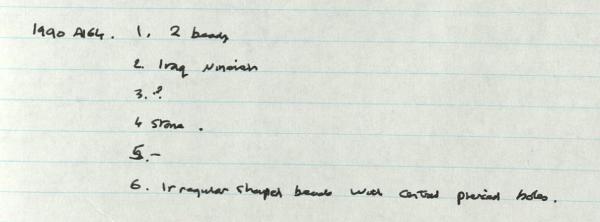 1990 A164. 1. 2 beads
2. Iraq Nineveh
3. ?
4 Stone.
5. -
6. Irregular shaped beads with central pierced holes.